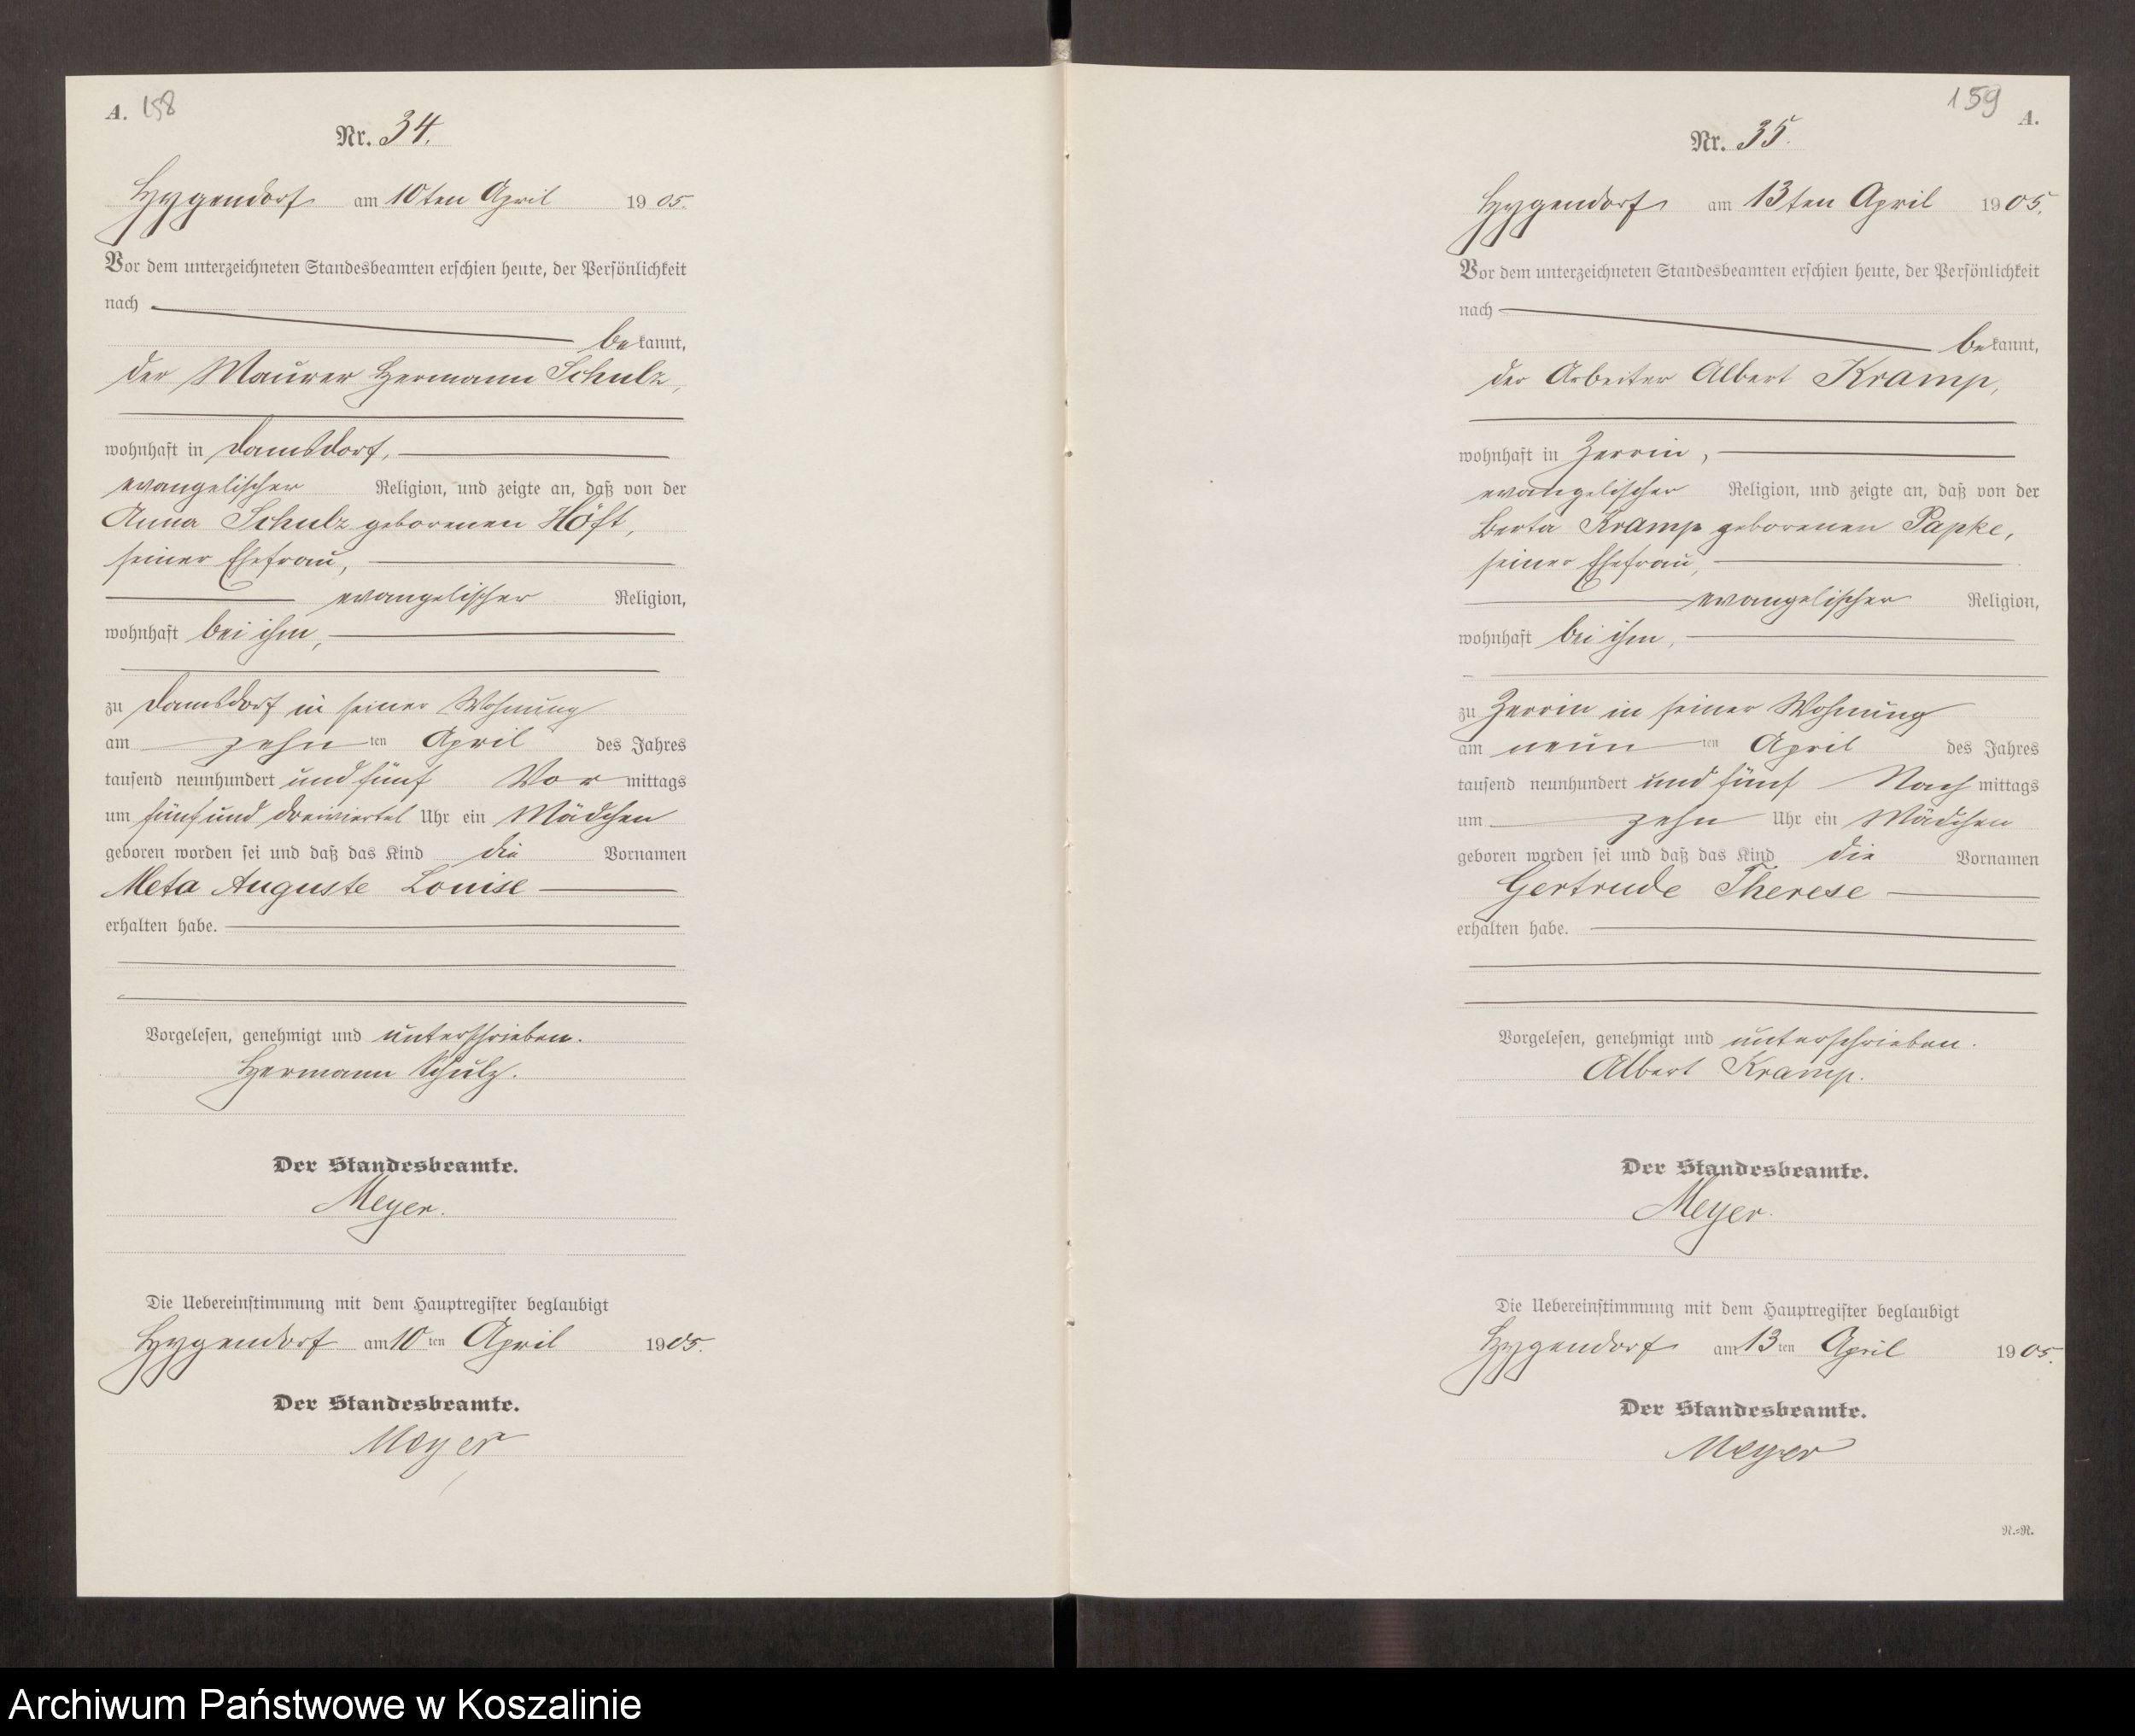 A. 158
Nr. 34.
Hygendorf am 10ten April 1905.
Vor dem unterzeichneten Standesbeamten erschien heute, der Persönlichkeit
nach
bekannt,
der Maurer Hermann Schulz,
wohnhaft in Damsdorf,
evangelischer Religion, und zeigte an, daß von der
Anna Schulz geborenen Höft,
seiner Ehefrau,
evangelischer Religion,
wohnhaft bei ihm,
zu Damsdorf in seiner Wohnung
am zehnten April des Jahres
tausend neunhundert und fünf Vormittags
um fünf und dreiviertel Uhr ein Mädchen
geboren worden sei und daß das Kind die Vornamen
Meta Auguste Louise
erhalten habe.
Vorgelesen, genehmigt und unterschrieben.
Hermann Schulz.
Der Standesbeamte.
Meyer.
Die Uebereinstimmung mit dem Hauptregister beglaubigt
Hygendorf am 10ten April 1905.
Der Standesbeamte.
Meyer
159 A.
Nr. 35.
Hygendorf am 13ten April 1905.
Vor dem unterzeichneten Standesbeamten erschien heute, der Persönlichkeit
nach
bekannt,
der Arbeiter Albert Kramp,
wohnhaft in Zerrin,
evangelischer Religion, und zeigte an, daß von der
Berta Kramp geborenen Papke,
seiner Ehefrau,
evangelischer Religion,
wohnhaft bei ihm,
zu Zerrin in seiner Wohnung
am neunten April des Jahres
tausend neunhundert und fünf Nachmittags
um zehn Uhr ein Mädchen
geboren worden sei und daß das Kind die Vornamen
Gertrude Therese
erhalten habe.
Vorgelesen, genehmigt und unterschrieben.
Albert Kramp.
Der Standesbeamte.
Meyer.
Die Uebereinstimmung mit dem Hauptregister beglaubigt
Hygendorf am 13ten April 1905.
Der Standesbeamte.
Meyer
R.=R.
Archiwum Państwowe w Koszalinie